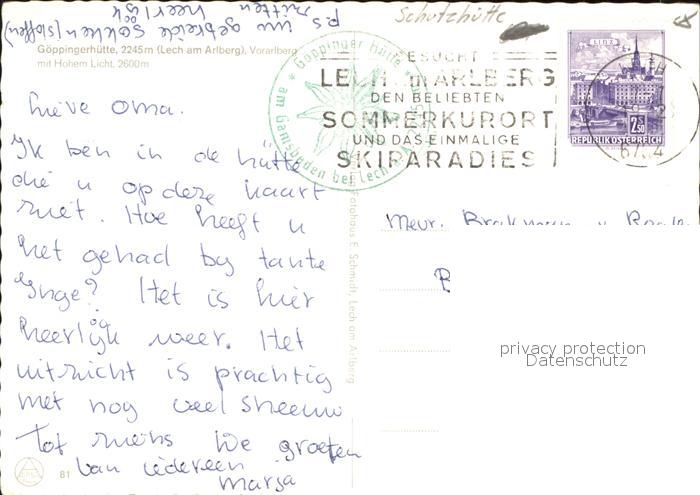 p.s. uw gebreide sokken (sloffen)
zitten heerlijk
Schutzhütte
Göppingerhütte, 2245 m (Lech am Arlberg), Vorarlberg
mit Hohem Licht, 2600m
lieve oma.
Ik ben in de hütte
die u op deze kaart
ziet. Hoe heeft u
het gehad by tante
Inge? Het is hier
heerlijk weer. Het
uitzicht is prachtig
met nog veel sneeuw
Tot ziens de groeten
van iedereen
Marja
81
* Göppinger Hütte *
am Gamsboden bei Lech
BESUCHT
LECH am ARLBERG
DEN BELIEBTEN
SOMMERKURORT
UND DAS EINMALIGE
SKIPARADIES
LINZ
2.50
REPUBLIK ÖSTERREICH
LECH
6764
Fotohaus E. Schmidt, Lech am Arlberg
Mevr.
privacy protection
Datenschutz